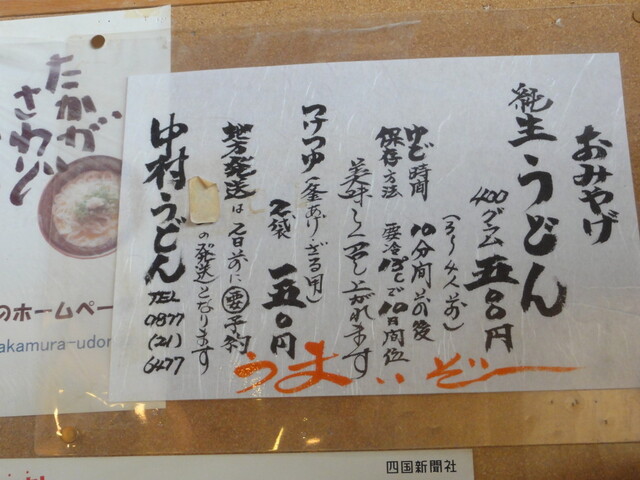 おみやげ
純生うどん
400グラム 五〇〇円
(3〜4人前)
ゆで時間 10分間前後
保存方法 要冷15℃で10日間位
美味しく召し上がれます
つけつゆ(釜あげ・ざる用)
2袋 一五〇円
地方発送は2日前に要予約
の発送となります
中村うどん TEL 0877(21)6477
うまいぞー
たかが
さわり
のホームペー
akamura-udon
四国新聞社